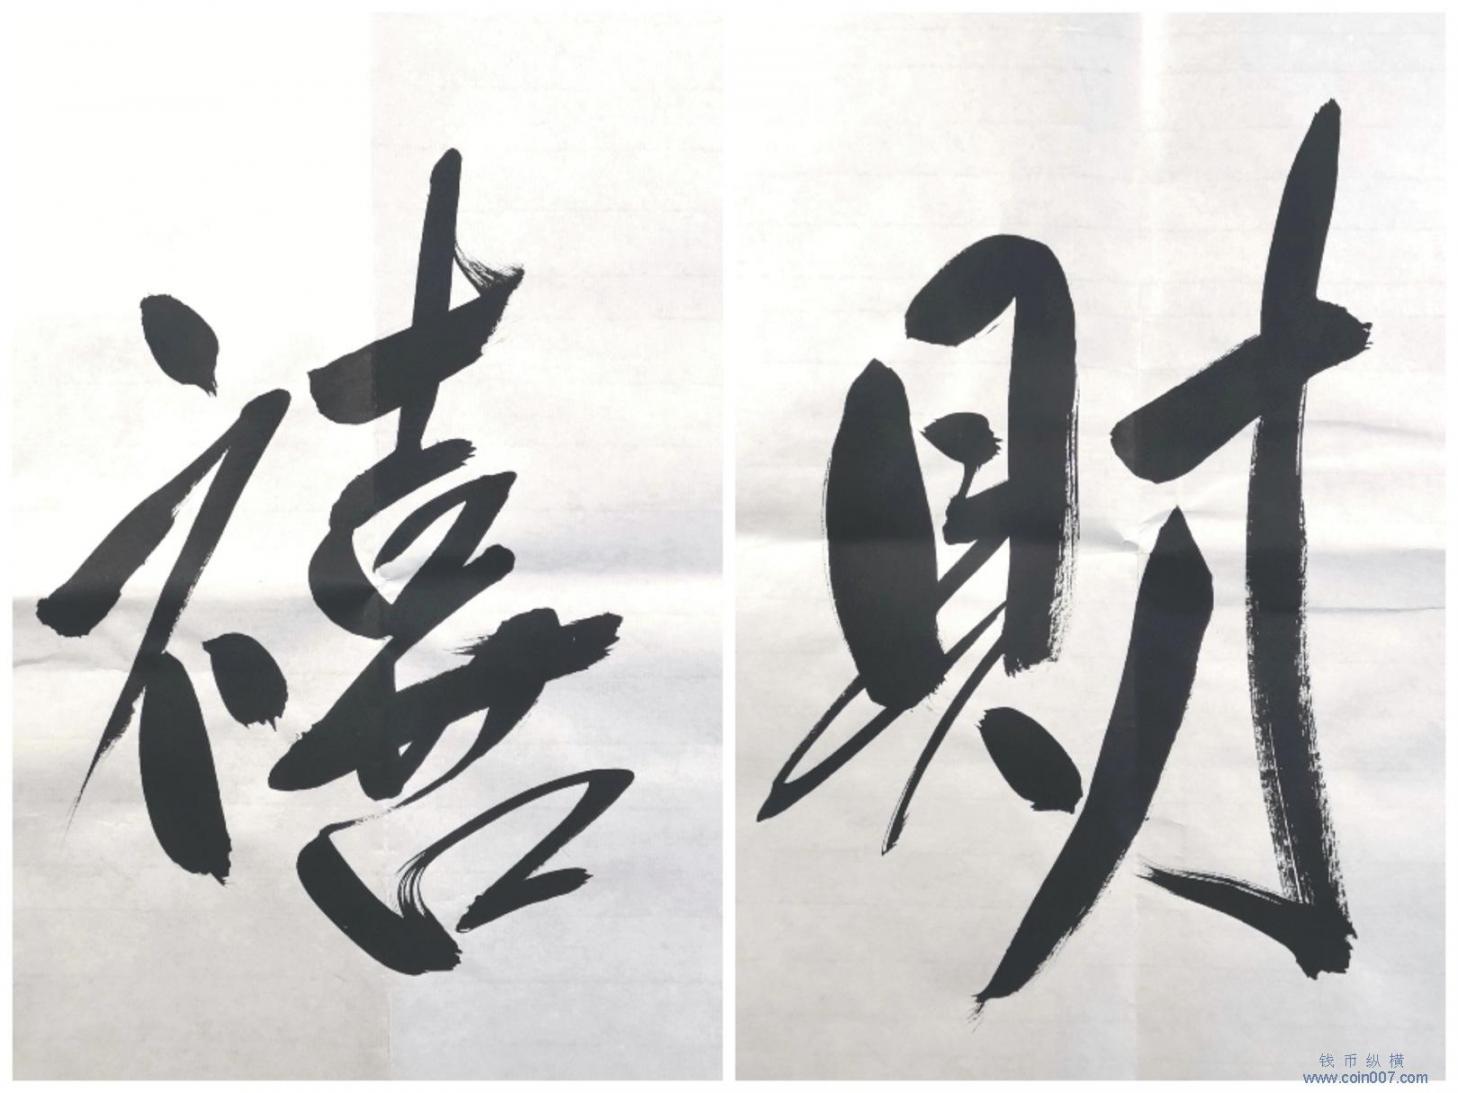 禧
財
钱币纵横
www.coin007.com